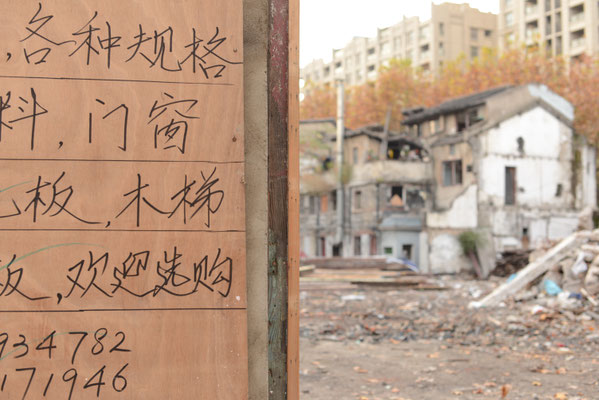 ,各种规格
料,门窗
板,木梯
板,欢迎选购
934782
171946